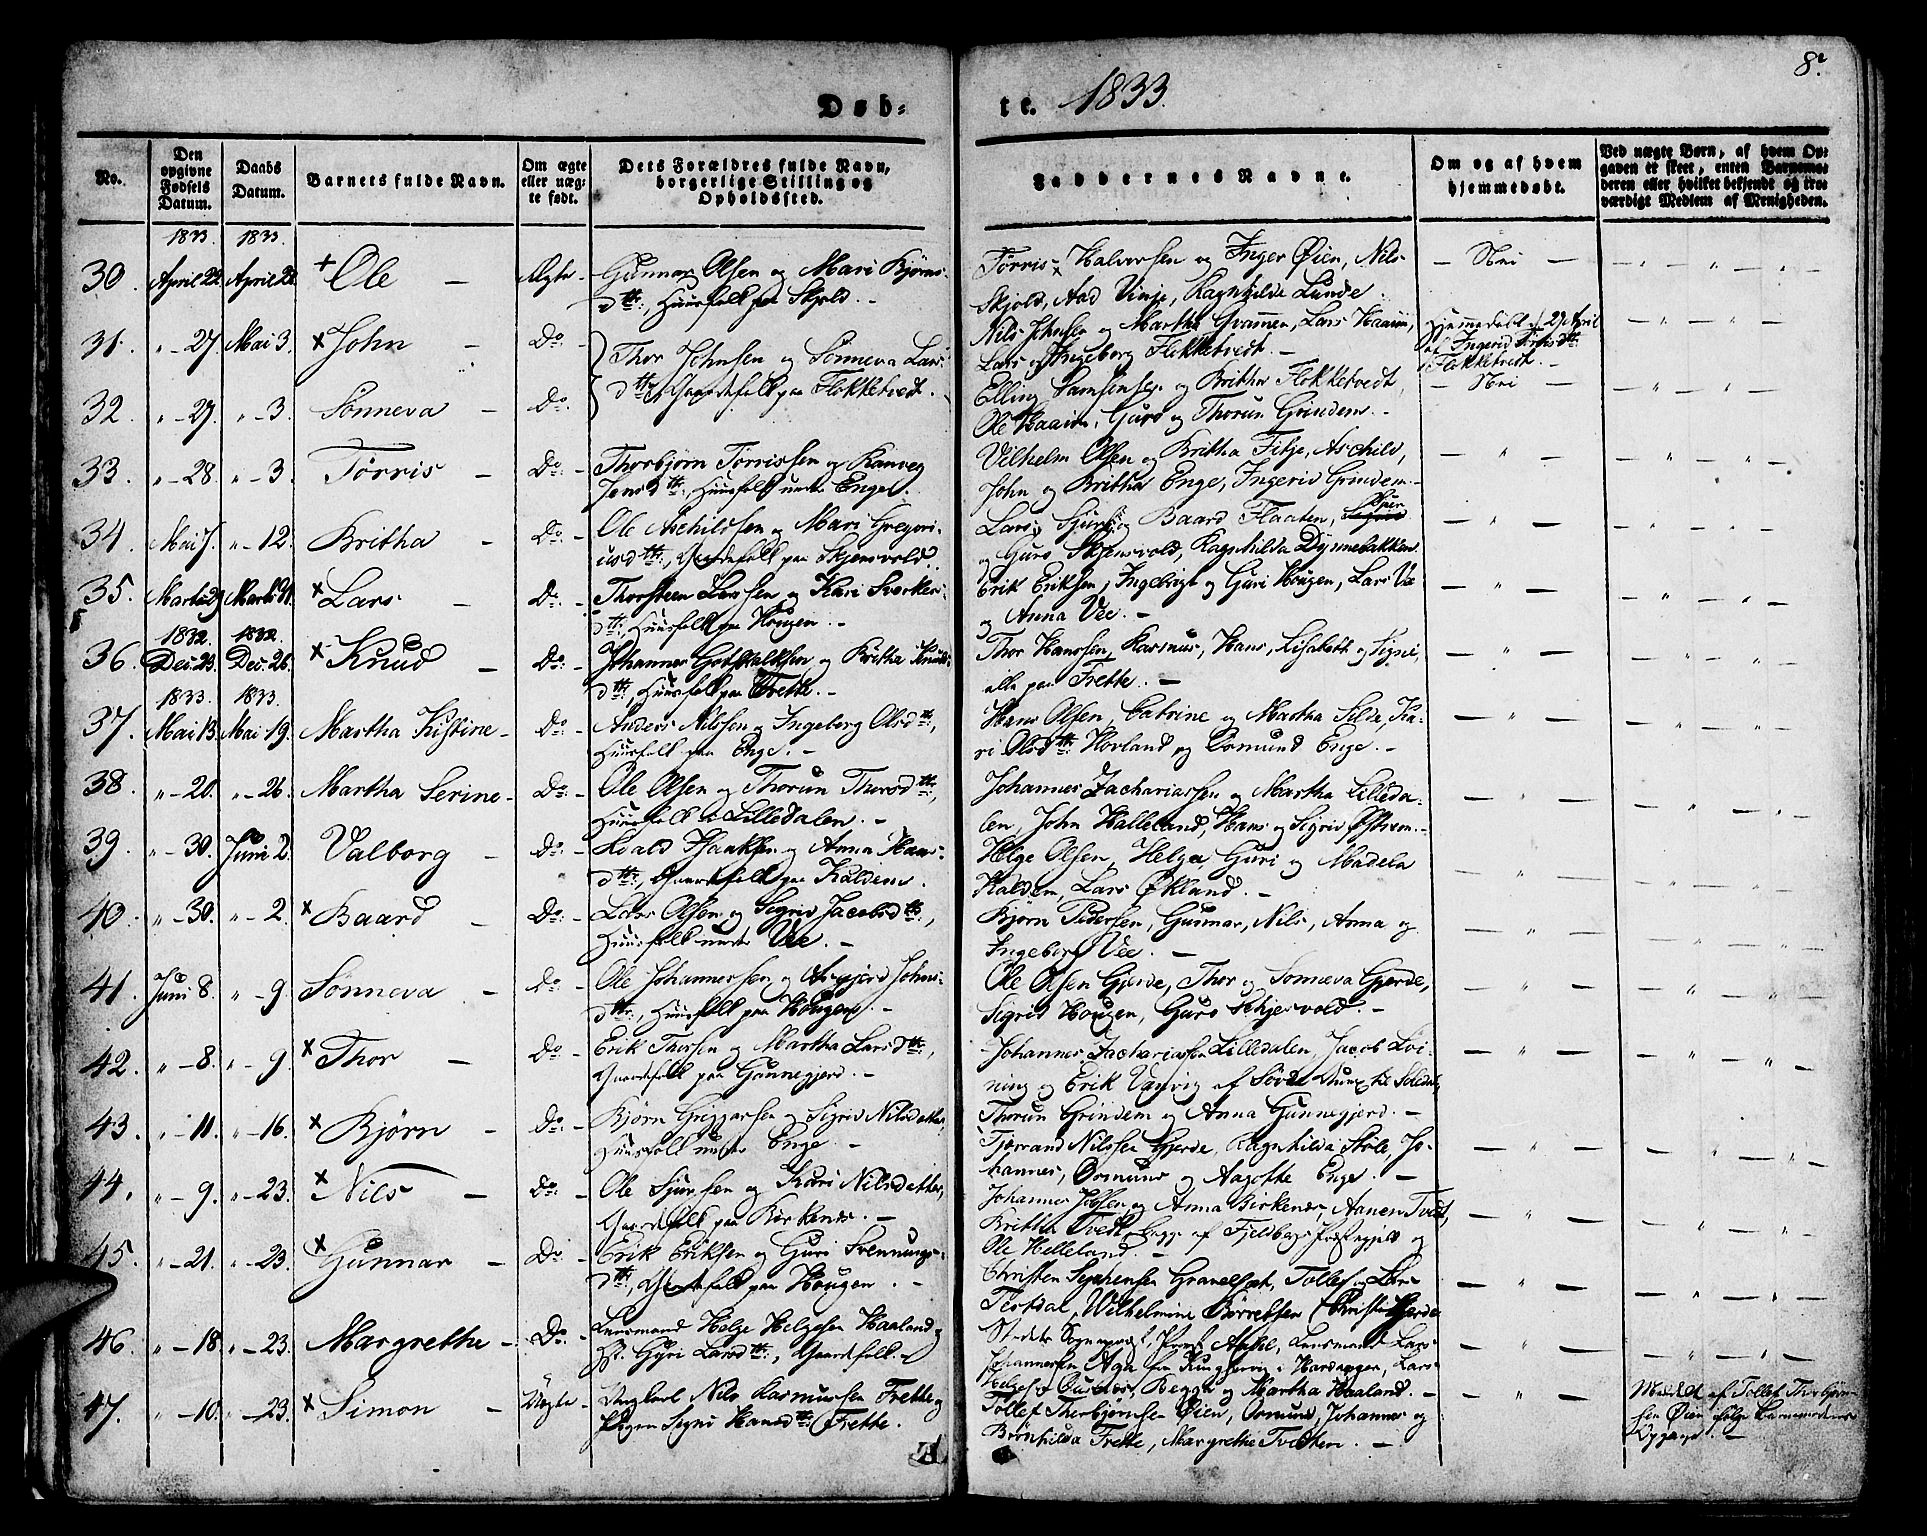 8.
Døb-
te. 1833.
No.
Den opgivne Fødsels Datum.
Daabs Datum.
Barnets fulde Navn.
Om ægte eller uæg-te født.
Dets Forældres fulde Navn, borgerlige Stilling og Opholdssted.
Faddernes Navne.
Om og af hvem hjemmedøbt.
Ved uægte Børn, af hvem Op-gaven er skeet, enten Barnemo-deren eller hvilket bekjendt og tro-værdigt Medlem af Menigheden.
1833. 1833.
30. April 22. April 28. + Ole - Ægte - Gunnar Olsen og Mari Bjørns-
dtr:, Huusfolk paa Skjold. -
Tørris Halvorsen og Inger Øien, Nils
Skjold, Aad Vinje, Ragnhilde Lunde
- Nei -
31. " - 27. Mai 3. × John - Do: - Thor Johnsen og Sønneva Lars-
dtr, Gaardfolk paa Flokketvedt.
Nils Johnsen og Martha Grannen, Lars Haaim,
Lars og Ingeborg Flokketvedt. -
Hjemmedøbt d. 27 April
af Ingerid
Flokketvedt. -
32. " - 27. " - 3. Sønneva - Do.
Elling Samsonsen og Britha Flokketvedt,
Ole Haaim, Guro og Thorun Grindem. -
- Nei -
33. " - 28. " - 3. Tørris - Do: - Thorbjørn Tørrissen og Ranveg
Jensdtr:, Huusfolk under Enge.
Vilhelm Olsen og Britha Fitje, Aschild,
John og Britha Enge, Ingerid Grindem. -
34. Mai 7. " - 12. Britha - Do: - Ole Aschildsen og Mari Gregori-
usdtr:, Gaardfolk paa Skjensvold.
Lars, Sjur og Baard Flaaten,
og Guro Skjensvold, Ragnhilda Dynnebakken.
35. Marts 29. Marts 31. × Lars - Do: - Thorsteen Larssen og Kari Sverkes-
dtr:, Huusfolk paa Hougen. -
Erik Eriksen, Ingebrigt og Guri Hougen, Lars Væ
og Anna Vee. -
1832. 1832.
36. Dec: 23. Dec: 26. × Knud - Do: - Johannes Gotskalksen og Britha Knuds-
dtr:, Huusfolk paa Frette. -
Thor Hanssen, Rasmus, Hans, Lisabeth og Signi,
alle paa Frette. -
1833. 1833.
37. Mai 13. Mai 19. Martha Kistine - Do: - Anders Nilssen og Ingeborg Olsdtr:,
Huusfolk paa Enge. -
Hans Olsen, Catrine og Martha Silde, Ka-
ri Olsdtr: Hovland og Osmund Enge. -
38. " - 20. " - 26. Martha Serine - Do: - Ole Olsen og Thorun Thorsdtr:,
Huusfolk i Lilledalen. -
Johannes Zachariassen og Martha Lilleda-
len, John Halleland, Hans og Sigrid Østrem. -
39. " - 30. Juni 2. Valborg - Do: - Isaksen og Anna Hans-
dtr:, Gaardfolk paa Kaldem.
Helge Olsen, Helga, Guri og Madela
Kaldem, Lars Økland. -
40. " - 30. " - 2. × Baard - Do: - Lars Olsen og Sigrid Jacobsdtr,
Huusfolk under Vee. -
Bjørn Pedersen, Gunnar, Nils, Anna og
Ingeborg Vee. -
41. Juni 8. " - 9. Sønneva - Do: - Ole Johannessen og Johns-
dtr:, Huusfolk paa Hougen. -
Ole Olsen Gjerde, Thor og Sønneva Gjerde,
Sigrid Hougen, Guro Schjensvold. -
42. " - 8. " - 9. × Thor - Do: - Erik Thorsen og Martha Larsdtr:,
Gaardfolk paa Gunnegjerd. -
Johannes Zachariassen Lilledalen, Jacob Lei-
ning og Erik Vanvig af
Thorun Grindem og Anna Gunnegjerd. -
43. " - 11. " - 16. × Bjørn - Do: - Bjørn Greggarsen og Sigrid Nilsdatter,
Huusfolk under Enge. -
Tjerrand Nilssen Gjerde, Ragnhilda Støle, Jo-
hannes, Osmund og Aagothe Enge. -
44. " - 9. " - 23. × Nils - Do: - Ole Sjursen og Kari Nilsdatter,
Gaardfolk paa Birkenes. -
Johannes og Anna Birkenes, Aanen Tvedt,
Britha Tvedt, Begge af Fjeldbergs Præstegjeld og
Ole Helleland. -
45. " - 21. " - 23. × Gunnar - Do: Erik Eriksen og Guri Svennungs-
dtr:, Gaardfolk paa Hougen. -
Christen Stephensen Gravelsæt, Tollef og Lars
Testdal, Wilhelmine Børretsen
46. " - 18. " - 23. Margrethe - Do: Lensmand Helge Helgesen Haaland og
Guri Larsdtr:, Gaardfolk. -
Lensmand Lars
Johannessen Aga fra Kingservig i Hardanger, Lars
Helgesen, Begga og Martha Haaland. -
47. " - 10. " - 23. × Simon - Uægte - Ungkarl Nils Rasmussen Frette og
Pigen Signi Hansdtr: Frette.
Tollef Thorbjørnsen Øien, Osmund, Johannes og
Brønhilda Frette, Margrethe Tveten. -
Meldt af Tollef Thorbjørn-
sen Øien ifølge Barnemoderens
Opgave -